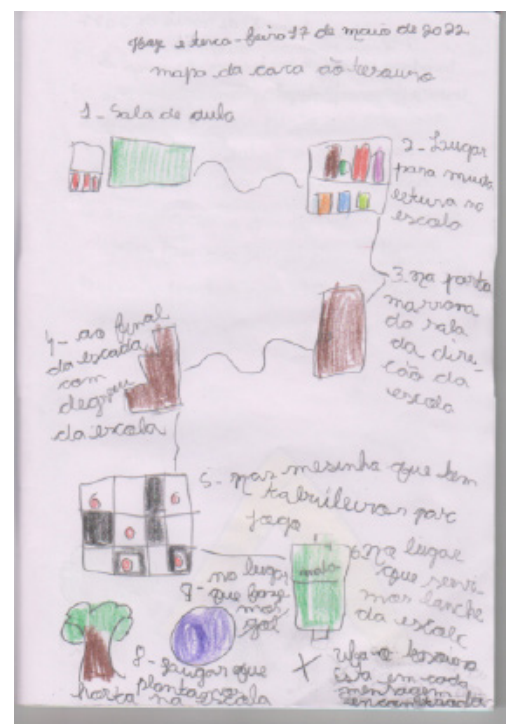 Hoje e terca-feira 17 de maio de 2022
mapa da casa ao tesouro
1- Sala de aula
2- Lugar
para muita
letura na
escola
3. na porta
marrom
da sala
da dire-
ção da
escola
4- ao final
da escada
com
degrau
da escola
5- nas mesinha que tem
tabuleiros par
joga
6 6
6. na lugar
que servi-
mos lanche
da escola
no lugar
que faze
mos
gol
8- Lugar que
planta
horta na escola
X Ufa o tesouro
Está em cada
mensagem
encontrada